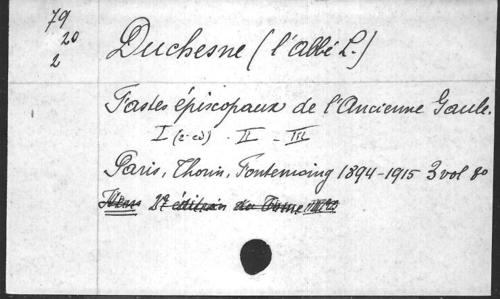 79
20
2
Duchesne (l'abbé L.)
Fastes épiscopaux de l'Ancienne Gaule.
I (2e éd) - II - III
Paris, Thorin, Fontemoing 1894-1915 3 vol 8o
2e édition du Tome